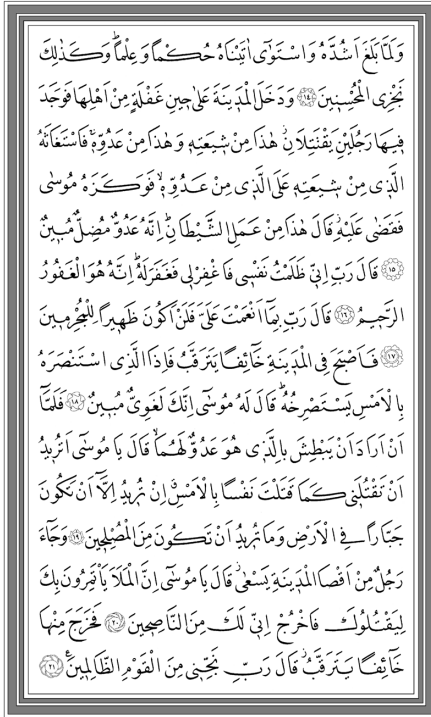 وَلَمَّا بَلَغَ اَشُدَّهُ وَاسْتَوٰٓى اٰتَيْنَاهُ حُكْماً وَعِلْماًۜ وَكَذٰلِكَ
نَجْزِي الْمُحْسِن۪ينَ ﴿١٤﴾ وَدَخَلَ الْمَد۪ينَةَ عَلٰى ح۪ينِ غَفْلَةٍ مِنْ اَهْلِهَا فَوَجَدَ
ف۪يهَا رَجُلَيْنِ يَقْتَتِلَانِۘ هٰذَا مِنْ ش۪يعَتِه۪ وَهٰذَا مِنْ عَدُوِّه۪ۚ فَاسْتَغَاثَهُ
الَّذ۪ي مِنْ ش۪يعَتِه۪ عَلَى الَّذ۪ي مِنْ عَدُوِّه۪ۙ فَوَكَزَهُ مُوسٰى
فَقَضٰى عَلَيْهِۘ قَالَ هٰذَا مِنْ عَمَلِ الشَّيْطَانِۜ اِنَّهُ عَدُوٌّ مُضِلٌّ مُب۪ينٌ
﴿١٥﴾ قَالَ رَبِّ اِنّ۪ي ظَلَمْتُ نَفْس۪ي فَاغْفِرْ ل۪ي فَغَفَرَ لَهُۜ اِنَّهُ هُوَ الْغَفُورُ
الرَّح۪يمُ ﴿١٦﴾ قَالَ رَبِّ بِمَٓا اَنْعَمْتَ عَلَيَّ فَلَنْ اَكُونَ ظَه۪يراً لِلْمُجْرِم۪ينَ
﴿١٧﴾ فَاَصْبَحَ فِي الْمَد۪ينَةِ خَٓائِفاً يَتَرَقَّبُ فَاِذَا الَّذِي اسْتَنْصَرَهُ
بِالْاَمْسِ يَسْتَصْرِخُهُۜ قَالَ لَهُ مُوسٰٓى اِنَّكَ لَغَوِيٌّ مُب۪ينٌ ﴿١٨﴾ فَلَمَّٓا
اَنْ اَرَادَ اَنْ يَبْطِشَ بِالَّذ۪ي هُوَ عَدُوٌّ لَهُمَاۙ قَالَ يَا مُوسٰٓى اَتُر۪يدُ
اَنْ تَقْتُلَن۪ي كَمَا قَتَلْتَ نَفْساً بِالْاَمْسِۗ اِنْ تُر۪يدُ اِلَّٓا اَنْ تَكُونَ
جَبَّاراً فِي الْاَرْضِ وَمَا تُر۪يدُ اَنْ تَكُونَ مِنَ الْمُصْلِح۪ينَ ﴿١٩﴾ وَجَٓاءَ
رَجُلٌ مِنْ اَقْصَا الْمَد۪ينَةِ يَسْعٰىۘ قَالَ يَا مُوسٰٓى اِنَّ الْمَلَاَ يَأْتَمِرُونَ بِكَ
لِيَقْتُلُوكَ فَاخْرُجْ اِنّ۪ي لَكَ مِنَ النَّاصِح۪ينَ ﴿٢٠﴾ فَخَرَجَ مِنْهَا
خَٓائِفاً يَتَرَقَّبُۘ قَالَ رَبِّ نَجِّن۪ي مِنَ الْقَوْمِ الظَّالِم۪ينَ۟ ﴿٢١﴾